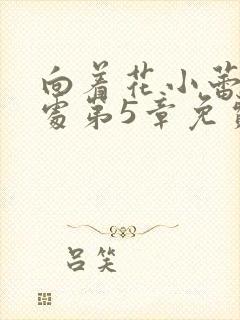 向着花小蕾
处第5章免费
吕笑